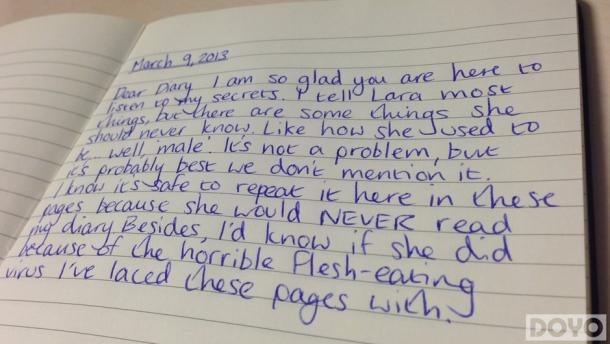 March 9, 2013
Dear Diary I am so glad you are here to
listen to my secrets. I tell Lara most
things, but there are some things she
should never know. Like how she used to
be... well, male. It's not a problem, but
it's probably best we don't mention it.
I know it's safe to repeat it here in these
pages because she would NEVER read
my diary. Besides, I'd know if she did
because of the horrible flesh-eating
virus I've laced these pages with.
DOYO